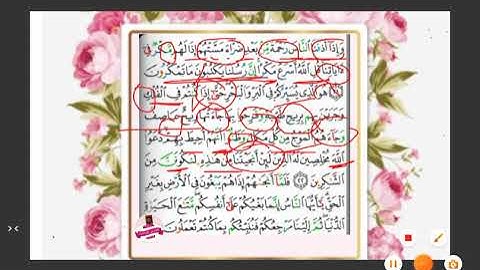 وَإِذَا أَذَقْنَا النَّاسَ رَحْمَةً مِّنْ بَعْدِ ضَرَّاءَ مَسَّتْهُمْ إِذَا لَهُم مَّكْرٌ فِي
ءَايَاتِنَا قُلِ اللَّهُ أَسْرَعُ مَكْرًا إِنَّ رُسُلَنَا يَكْتُبُونَ مَا تَمْكُرُونَ
هُوَ الَّذِي يُسَيِّرُكُمْ فِي الْبَرِّ وَالْبَحْرِ حَتَّىٰ إِذَا كُنتُمْ فِي الْفُلْكِ
وَجَرَيْنَ بِهِم بِرِيحٍ طَيِّبَةٍ وَفَرِحُوا بِهَا جَاءَتْهَا رِيحٌ عَاصِفٌ
وَجَاءَهُمُ الْمَوْجُ مِن كُلِّ مَكَانٍ وَظَنُّوا أَنَّهُمْ أُحِيطَ بِهِمْ دَعَوُا
اللَّهَ مُخْلِصِينَ لَهُ الدِّينَ لَئِنْ أَنجَيْتَنَا مِنْ هَٰذِهِ لَنَكُونَنَّ مِنَ
الشَّاكِرِينَ ٢٢ فَلَمَّا أَنجَاهُمْ إِذَا هُمْ يَبْغُونَ فِي الْأَرْضِ بِغَيْرِ
الْحَقِّ يَا أَيُّهَا النَّاسُ إِنَّمَا بَغْيُكُمْ عَلَىٰ أَنفُسِكُم مَّتَاعَ الْحَيَاةِ
الدُّنْيَا ثُمَّ إِلَيْنَا مَرْجِعُكُمْ فَنُنَبِّئُكُم بِمَا كُنتُمْ تَعْمَلُونَ